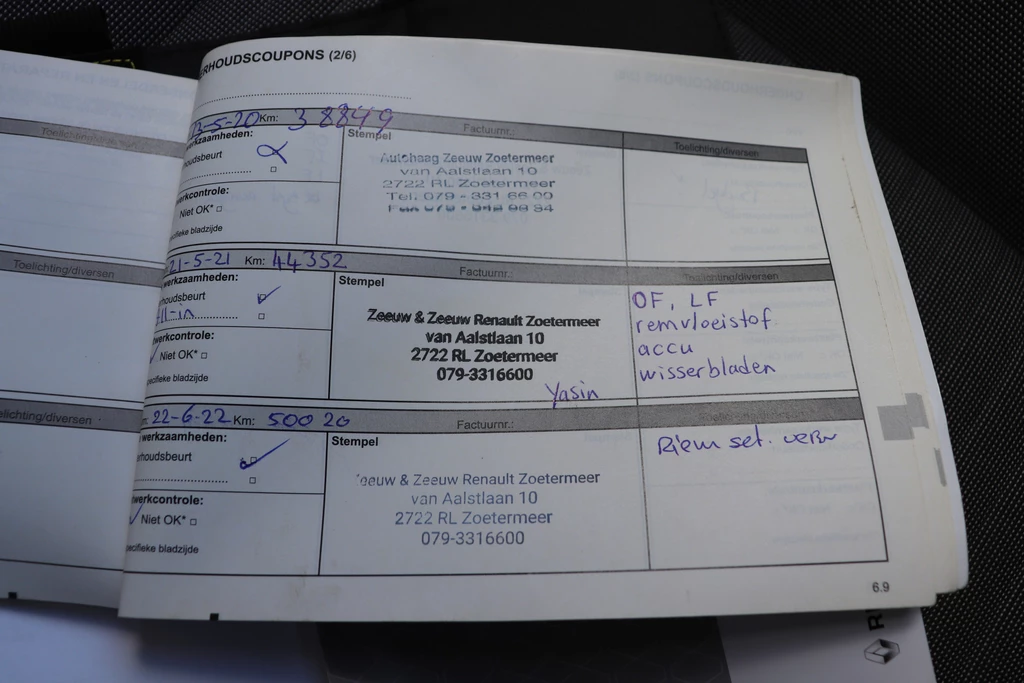 RHOUDSCOUPONS (2/6)
Toelichting/diversen
Toelichting/diversen
elichting/diversen
23-5-20 Km: 38849
Factuurnr.:
Toelichting/diversen
erkzaamheden:
houdsbeurt
Stempel
Autohaag Zeeuw Zoetermeer
van Aalstlaan 10
2722 RL Zoetermeer
Tel: 079 - 331 66 00
werkcontrole:
Niet OK*
ifieke bladzijde
21-5-21 Km: 44352
Factuurnr.:
Toelichting/diversen
werkzaamheden:
rhoudsbeurt
Stempel
Zeeuw & Zeeuw Renault Zoetermeer
van Aalstlaan 10
2722 RL Zoetermeer
079-3316600
Yasin
OF, LF
remvloeistof
accu
wisserbladen
werkcontrole:
Niet OK*
ecifieke bladzijde
22-6-22 Km: 50020
Factuurnr.:
werkzaamheden:
rhoudsbeurt
Stempel
Zeeuw & Zeeuw Renault Zoetermeer
van Aalstlaan 10
2722 RL Zoetermeer
079-3316600
Riem set. verv
werkcontrole:
Niet OK*
pecifieke bladzijde
6.9